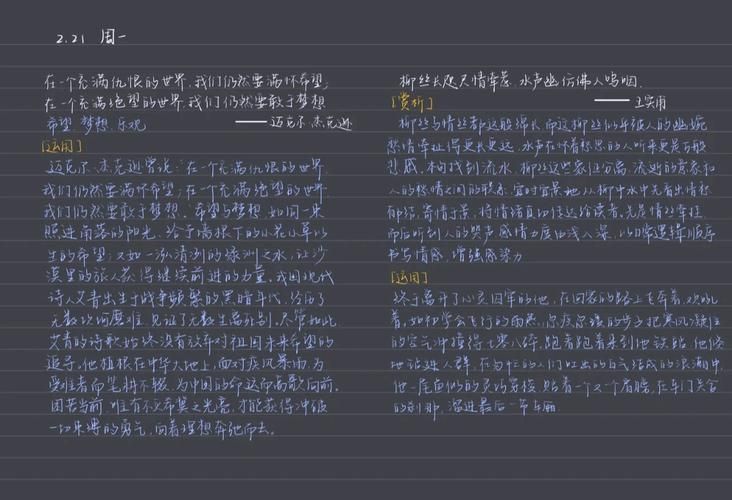 2.21 周一
在一个充满仇恨的世界,我们仍然要满怀希望;
在一个充满绝望的世界,我们仍然要敢于梦想
希望、梦想、乐观 ——迈克尔·杰克逊
[运用]
迈克尔·杰克逊曾说:在一个充满仇恨的世界
我们仍然要满怀希望;在一个充满绝望的世界
我们仍然要敢于梦想。希望与梦想,如同一束
照进角落的阳光,给予墙根下的小花小草以
生的希望;又如一泓清冽的绿洲之水,让沙
漠里的旅人获得继续前进的力量。我国现代
诗人艾青出生于战争频繁的黑暗年代,经历了
无数坎坷磨难,见证了无数生离死别。尽管如此,
艾青的诗歌始终没有放弃对祖国未来希望的
追寻。他植根在中华大地上,面对疾风暴雨,为
受难者而笔耕不辍,为中国的命运而高歌向前。
困苦当前,唯有不灭希冀之光亮,才能获得冲破
一切束缚的勇气,向着理想奔驰而去。
柳丝长咫尺情牵惹,水声幽仿佛人呜咽。
[赏析] ——王实甫
柳丝与情丝都这般绵长,而这柳丝仿佛被人的幽婉
愁情牵扯得更长更远,水声在怀着愁思的人听来更是万般
悲戚。本句找到流水、柳丝这些象征分离、流逝的意象和
人的愁情之间的联系,宜时宜景地从柳中水中先看出情愁
郁结,寄情于景,将情话真切传达给读者。先是情丝牵挂,
而后听到人的哭声感情力度由浅入深,以日常逻辑顺序
书写情感,增强感染力
[运用]
终于离开了心灵囚牢的他,在回家的路上飞奔着,欢吼
着,如初学会飞行的雨燕,深疾深缓的步子把寒风凝住
的空气冲撞得七零八碎,跑着跑着来到地铁站,他佼
地钻进人群,在匆忙的人们吐出的白气结成的浪潮中,
他一尾鱼似的灵巧穿梭,贴着一个又一个肩膀,在车门关合
的刹那,溜进最后一节车厢